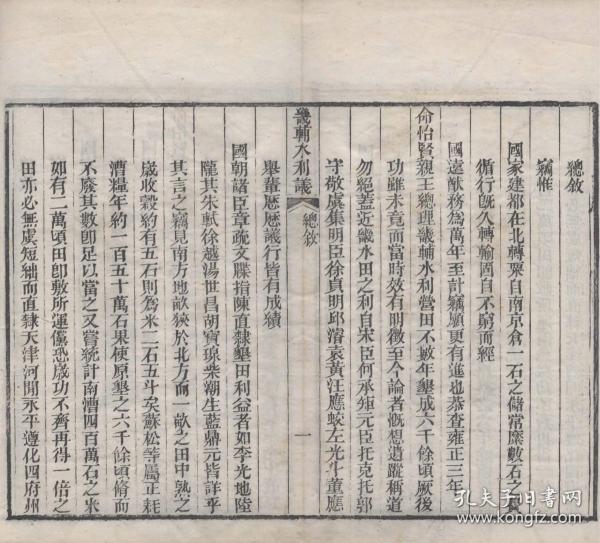 總敘
竊惟
國家建都在北轉粟自南京倉一石之儲常糜數石之
循行既久轉輸固自不窮而經
國遠猷務爲萬年至計竊願更有進也恭查雍正三年
命怡賢親王總理畿輔水利營田不數年墾成六千餘頃厥後
功雖未竟而當時效有明徵至今論者慨想遺蹤稱道
勿絕蓋近畿水田之利自宋臣何承矩元臣托克托郭
守敬虞集明臣徐貞明邱濬袁黃汪應蛟左光斗董應
畿輔水利議
總敘
一
舉輩歷歷議行皆有成績
國朝諸臣章疏文牒指陳直隸墾田利益者如李光地陸
隴其朱軾徐越湯世昌胡寶瑔柴潮生藍鼎元皆詳乎
其言之竊見南方地畝狹於北方而一畝之田中熟之
歲收穀約有五石則爲米二石五斗矣蘇松等屬正耗
漕糧年約一百五十萬石果使原墾之六千餘頃脩而
不廢其數卽足以當之又嘗統計南漕四百萬石之米
如有二萬頃田卽敷所運儻恐歲功不齊再得一倍之
田亦必無虞短絀而直隸天津河閒永平遵化四府州
孔夫子旧书网
www.kongfz.com